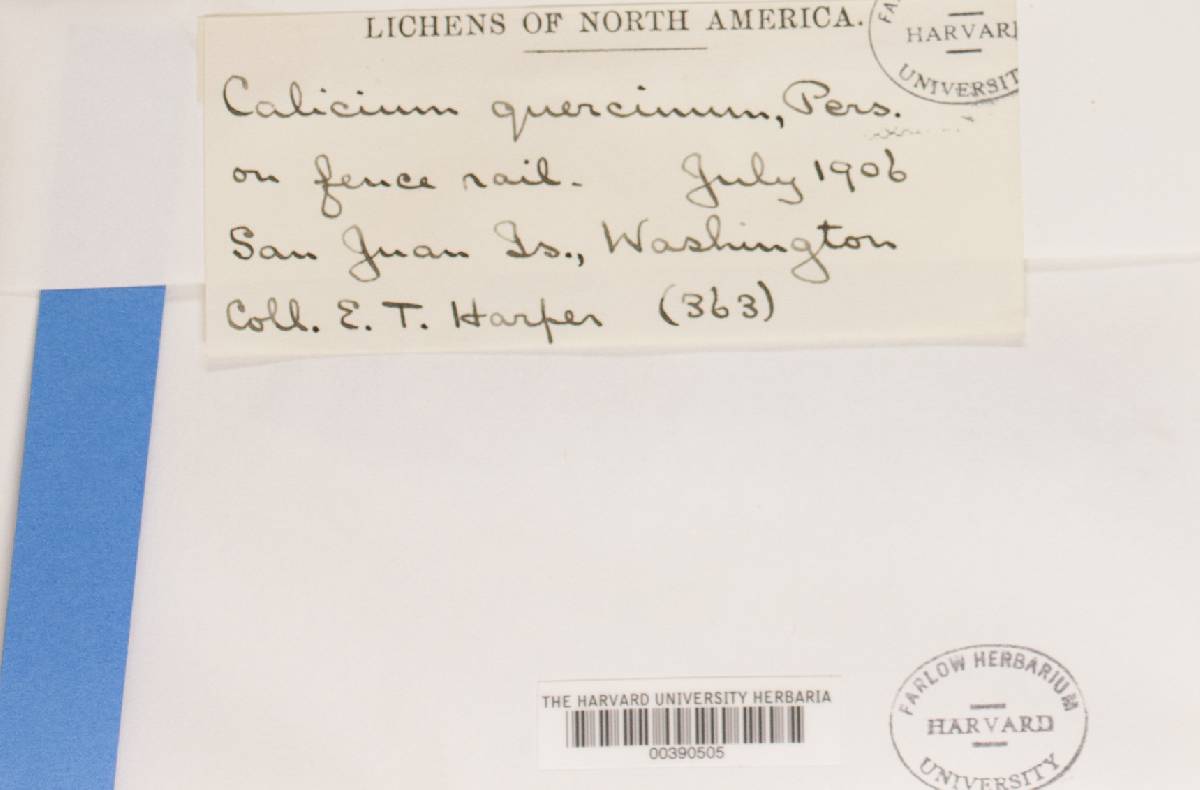 LICHENS OF NORTH AMERICA.
HARVARD
UNIVERSIT
Calicium quercinum, Pers.
on fence rail. July 1906
San Juan Is., Washington
Coll. E. T. Harper (363)
THE HARVARD UNIVERSITY HERBARIA
00390505
FARLOW HERBARIUM
HARVARD
UNIVERSITY